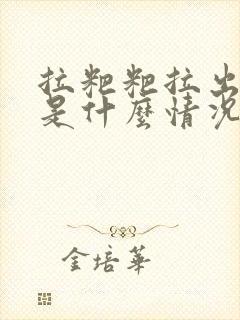 拉粑粑拉出
是什麼情況
金培華